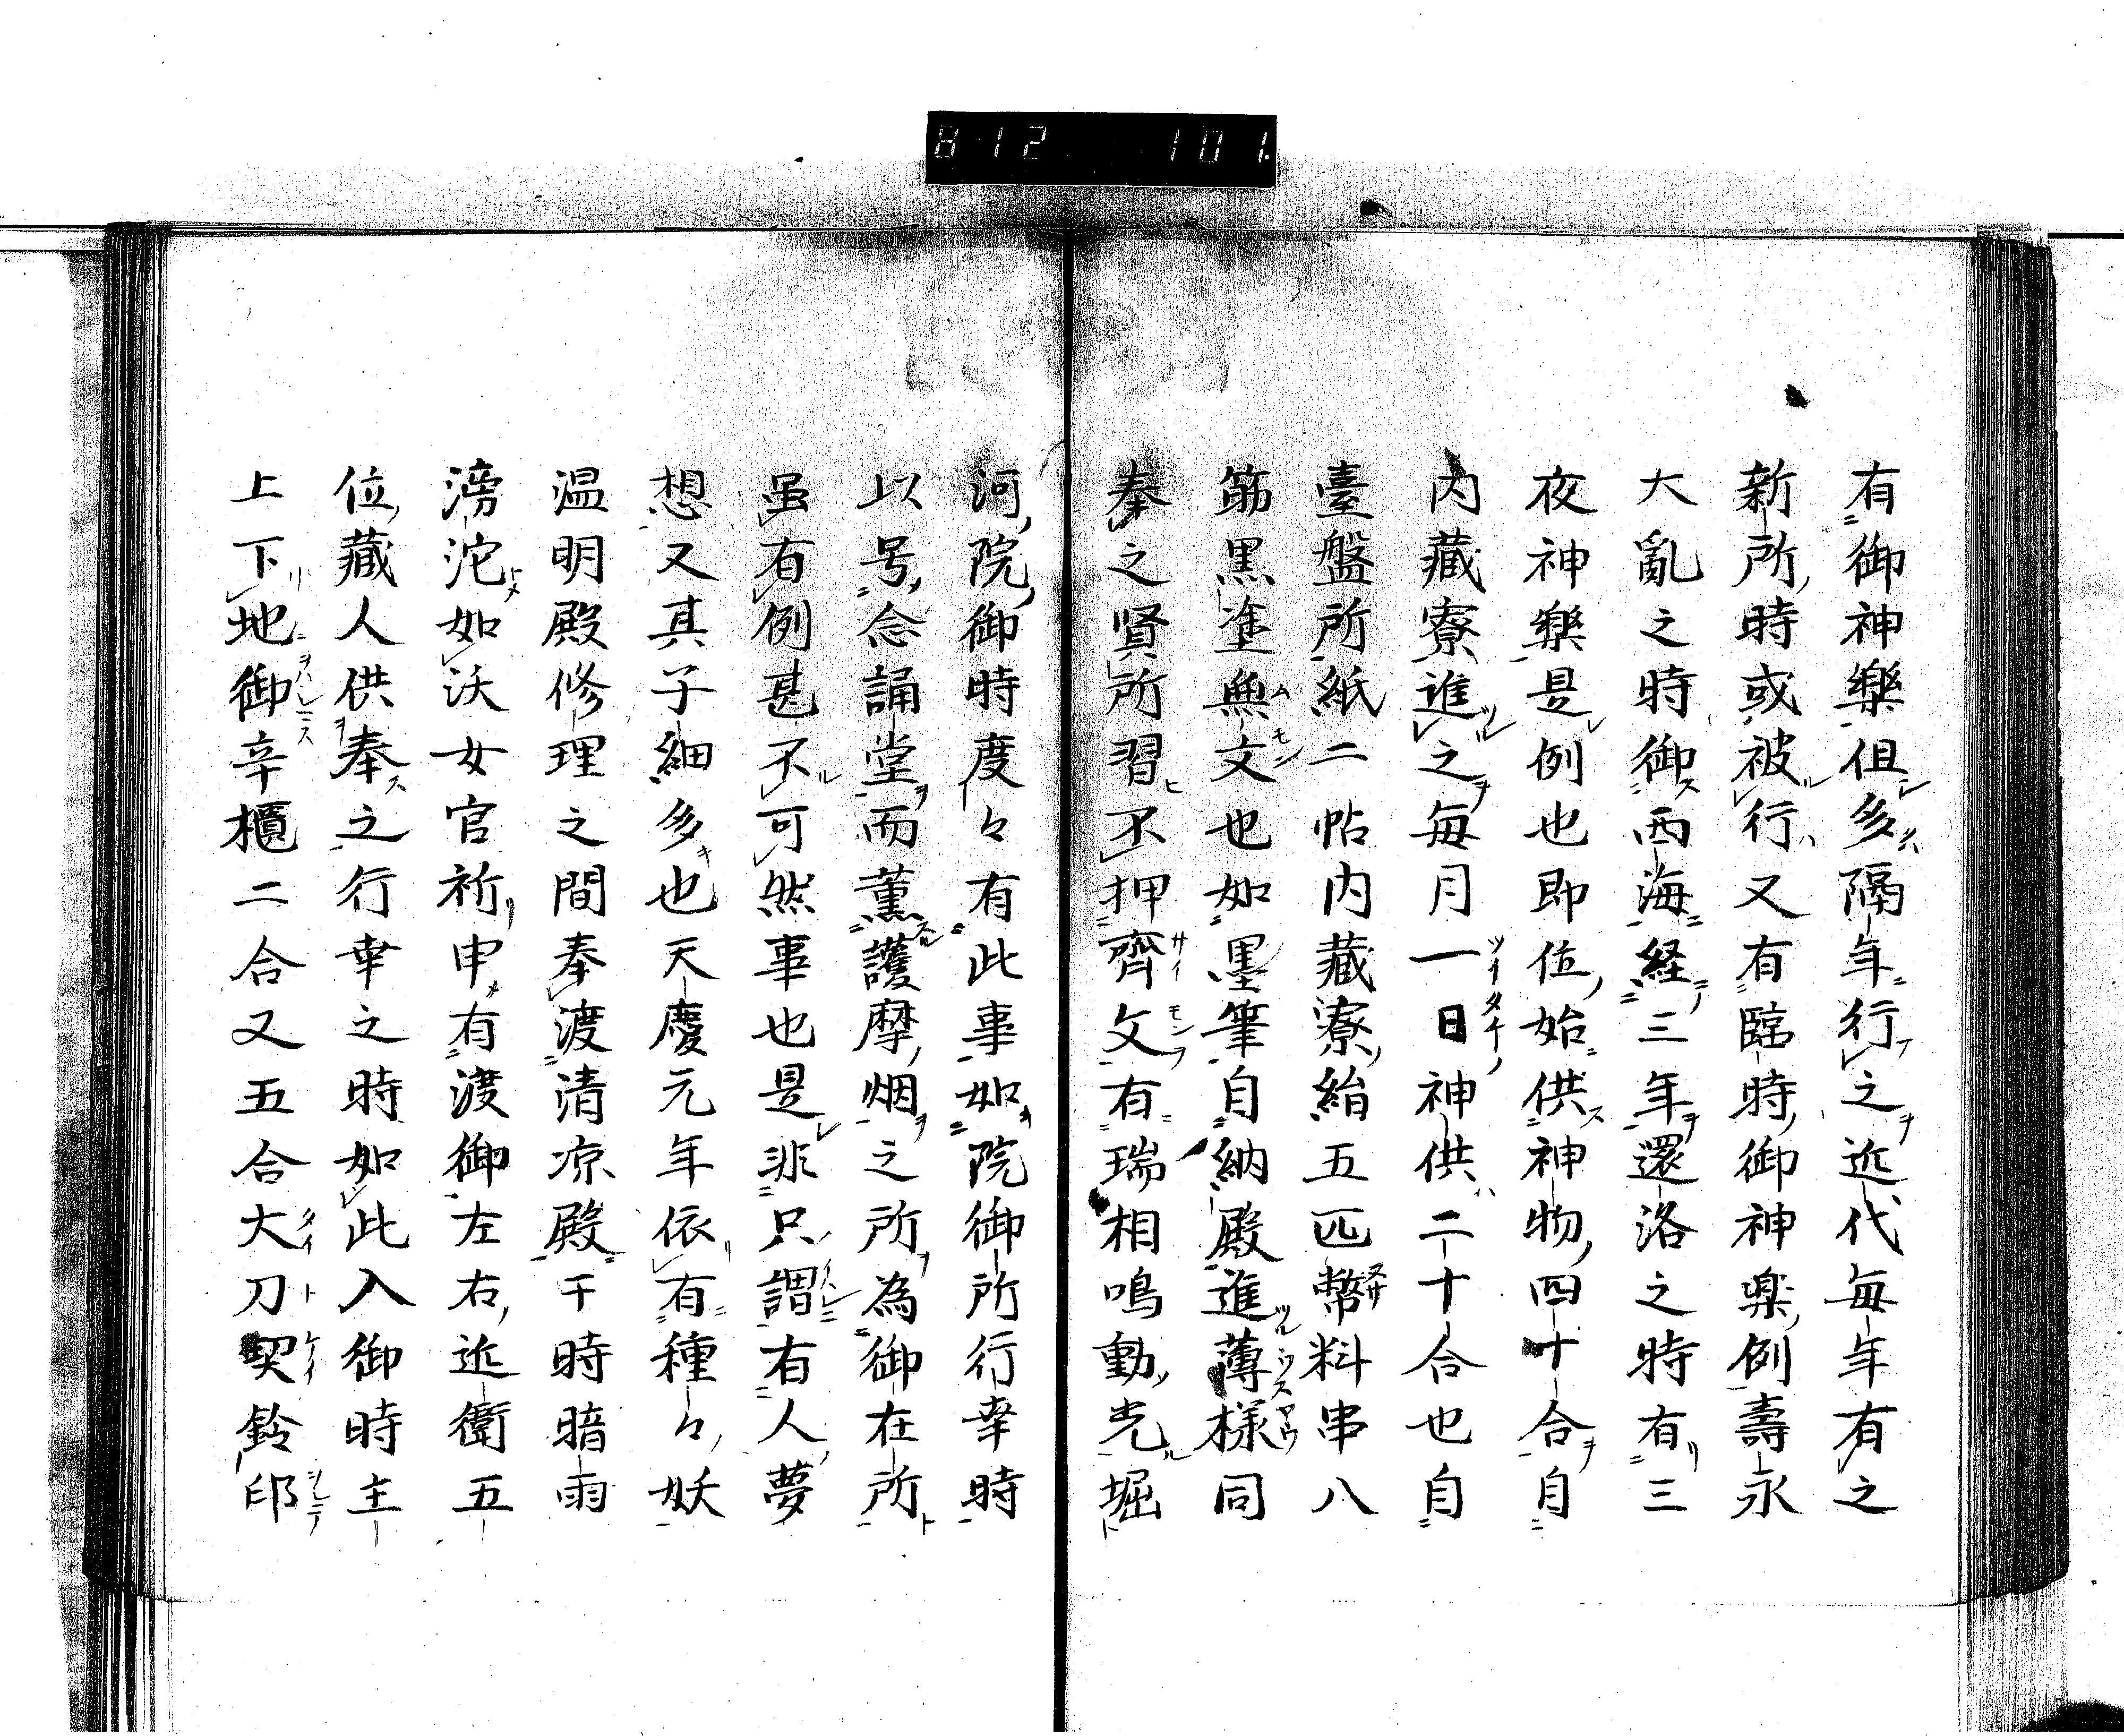 812 101.
有御神樂但多隔年行之近代毎年有之
新所時或被行又有臨時御神楽例壽永
大亂之時御西海経三年還洛之時有三
夜神樂是例也即位始供神物四十合自
内藏寮進之毎月一日神供二十合也自
臺盤所紙二帖内藏寮絹五匹幣料串八
筋黒塗無文也如墨筆自納殿進薄様同
奉之賢所習不押齊文有瑞相鳴動光堀
河院御時度々有此事如院御所行幸時
以号念誦堂而薫護摩烟之所為御在所
虽有例甚不可然事也是非只謂有人夢
想又其子細多也天慶元年依有種々妖
温明殿修理之間奉渡清凉殿于時暗雨
滂沱如沃女官祈申有渡御左右近衛五
位藏人供奉之行幸之時如此入御時主
上下地御辛櫃二合又五合大刀契鈴印